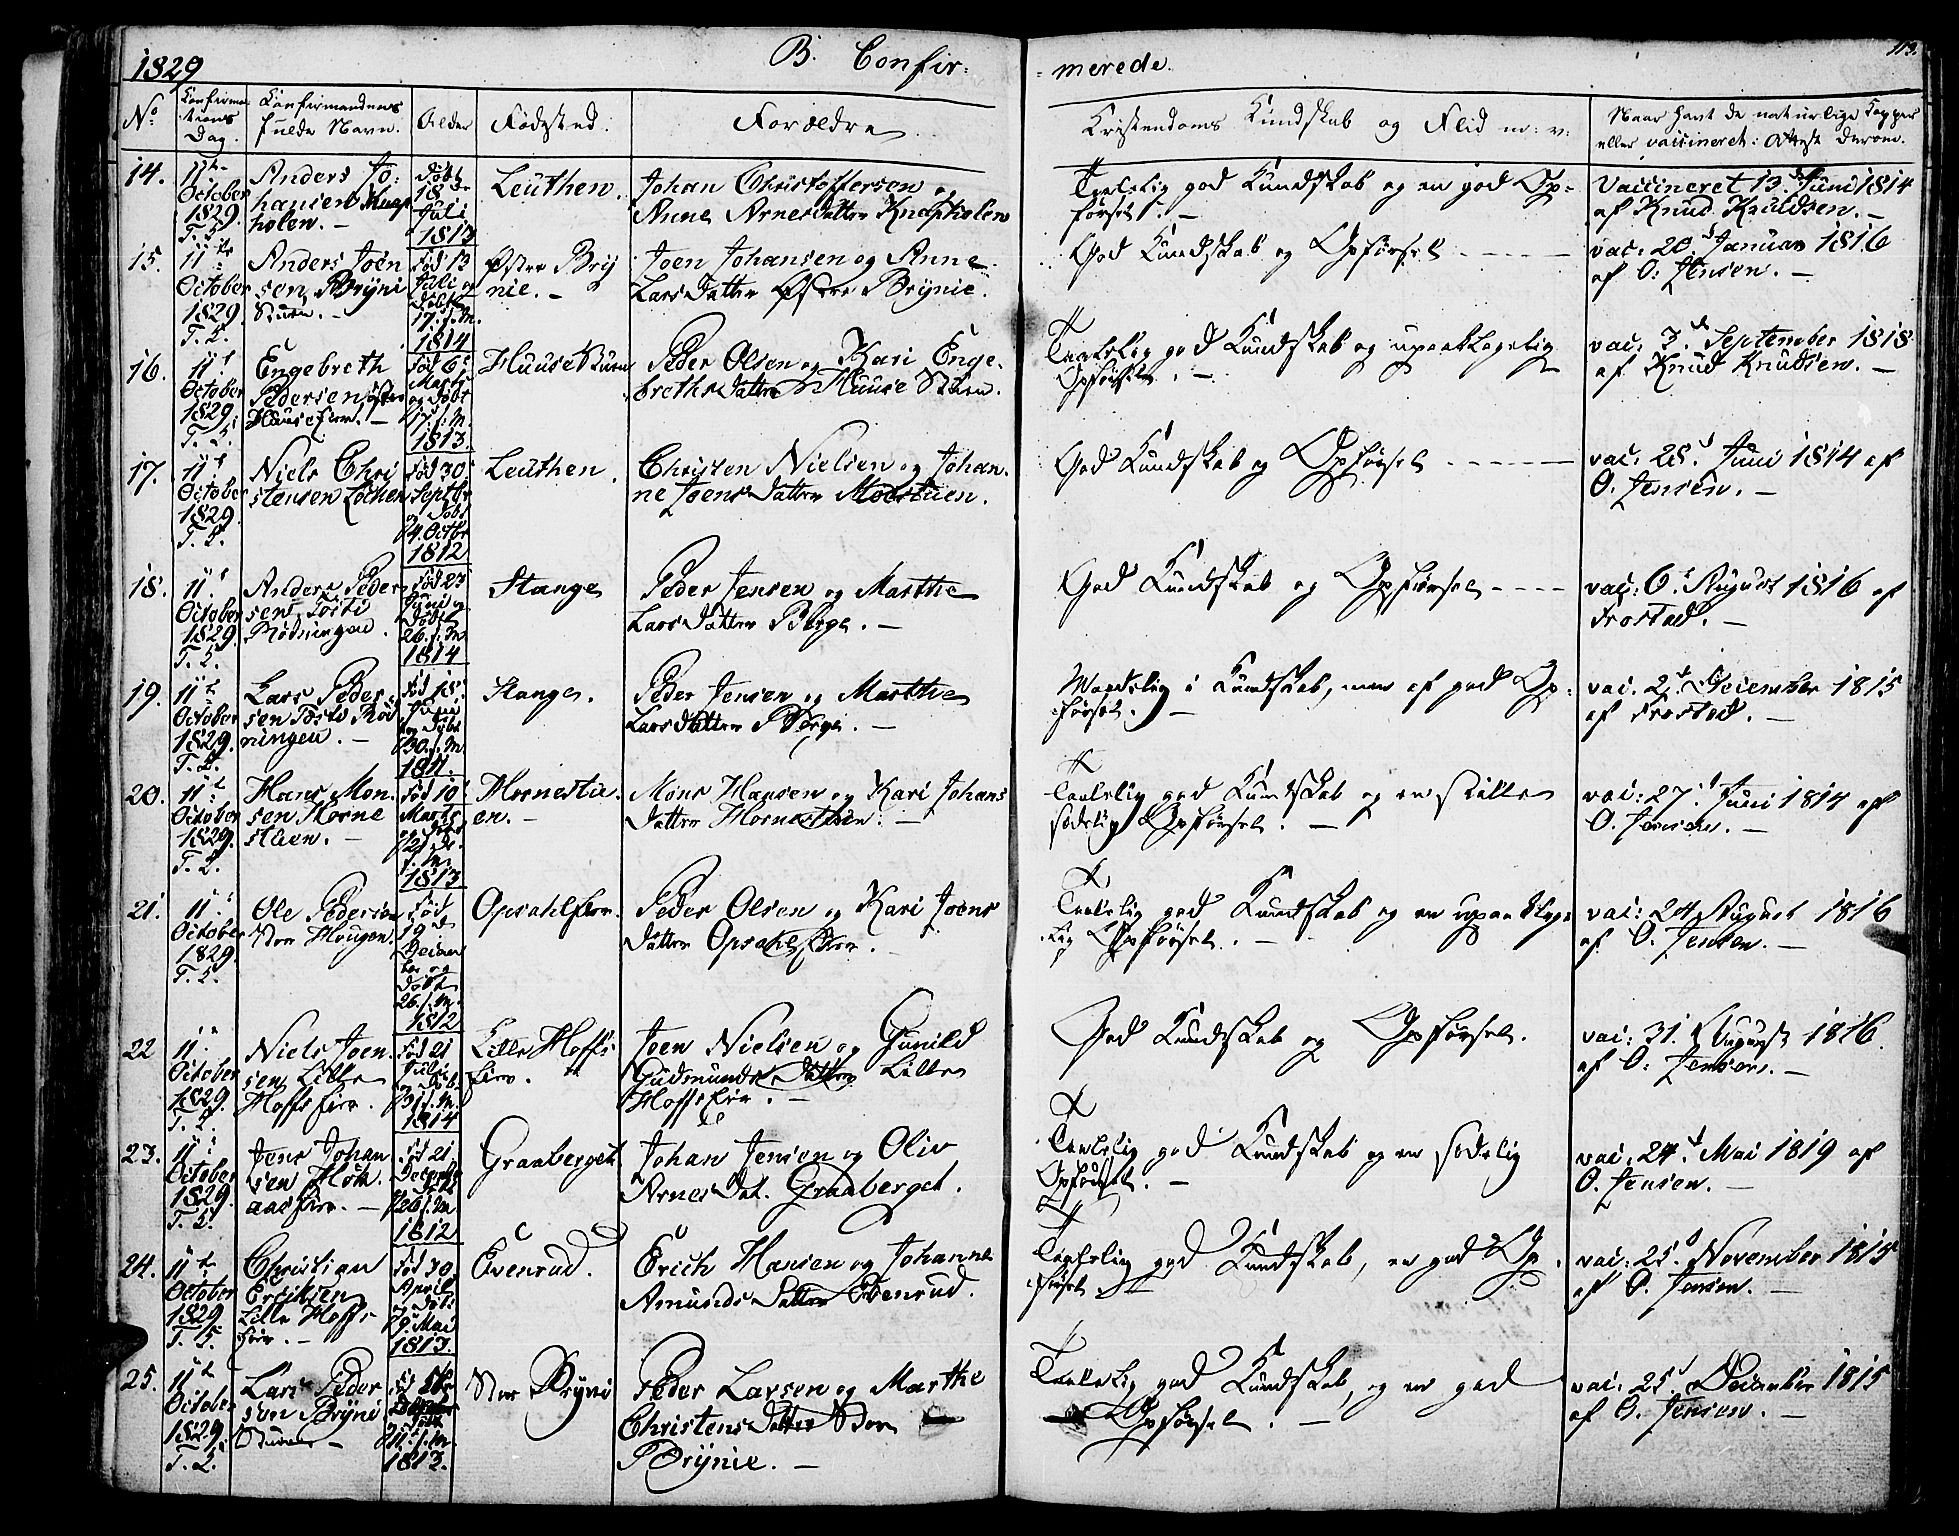 1829
B. Confir-
-merede.
113.
No.
Confirma-
tions
Dag.
Confirmandens
fulde Navn.
Alder
Fødested.
Forældre
Kristendoms Kundskab og Flid m: v:
Naar havt de naturlige Kopper
eller vaccineret: Attest derom.
14.
11te
October
1829.
Anders Jo-
hansen Knap
holen. -
Døbt
18de
Juli
1813
Leuthen.
Johan Christoffersen og
Anne Arnesdatter Knapholen
Temlelig god Kundskab og en god Op-
førsel. -
Vaccineret 13. Juni 1814
af Knud Knudsen. -
15.
11te
October
1829.
Anders Joen
sen Brynie
Stuen. -
Fød 13
Juli og
Døbt
17. s. M.
1814
Østre Bry
nie. -
Joen Johansen og Anne
Larsdatter Østre Brynie.
God Kundskab og Opførsel - - - - -
vac: 20d Januar 1816
af O: Jensen. -
16.
11t
October
1829.
Engebreth
Pedersen
Fød 6
Marts
og Døbt
17. s. M.
1813.
HuuseStuen
Peder Olsen og Kari Enge-
brethsdatter Huuse Stuen.
Temlelig god Kundskab og upaaklagelig
Opførsel. -
vac: 3d September 1818
af Knud Knudsen. -
17.
11t
October
1829.
Niels Chri
stensen
Fød 30
Septbr
og Døbt
4. Octbr
1812
Leuthen.
Christen Nielsen og Johan-
ne Joensdatter Moestuen.
God Kundskab og Opførsel - - - - - -
vac: 28d Juni 1814 af
O. Jensen. -
18.
11t
October
1829.
Anders Peder
sen
Fød 23
Juni og
Døbt
26. s. M
1814
Stange
Peder Jensen og Marthe
Larsdatter Berge. -
God Kundskab og Opførsel - - - -
vac: 6t August 1816 af
Frostad. -
19.
11t
October
1829.
Lars Peder
sen
ningen. -
Fød 18
og Døbt
30. s. M
1811.
Stange.
Peder Jensen og Marthe
Larsdatter Berge. -
Maadelig i Kundskab, men af god Op-
førsel. -
vac. 2d December 1815
af Frostad. -
20.
11t
October
1829.
Hans Mon
sen Horne
stuen. -
Fød 10
Marts
og Døbt
21de
s. M.
1813
Hornestu
en. -
Mons Hansen og Kari Johans
datter Hornestuen. -
Temlelig god Kundskab og en stille
sædelig Opførsel. -
vac: 27d Juni 1814 af
O. Jensen. -
21.
11
October
1829.
Ole Pedersen
Store Haugen.
Fød
19de
Decem
ber og
døbt
26. s. M.
1812
Opsahleier.
Peder Olsen og Kari Joens
datter Opsahl Eier.
Temlelig god Kundskab og en upaaklage
lig Opførsel. -
vac: 24 August 1816
af O. Jensen. -
22
11
October
1829.
Niels Joen
sen Lille
Hoffs Eier.
Fød 21
Juli
og Døbt
31 s. M
1814
Lille Hoffs
Eier.
Joen Nielsen og Gunild
Gudmundsdatter Lille
Hoffs Eier. -
God Kundskab og Opførsel.
vac: 31. August 1816.
af O: Jensen. -
23.
11
October
1829.
Jens Johan
sen
Fød 21
Decembr
26. s. M
1812
Graaberget
Johan Jensen og Oliv
Arnesdat. Graaberget.
Temlelig god Kundskab og en sædelig
Opførsel. -
vac. 24d Mai 1819 af
O. Jensen. -
24.
11t
October
1829
Christian
Erichsen
Lille Hoffs
Eier. -
Fød 30
April
og Døbt
9. Mai
1813.
Evenrud.
Erich Hansen og Johanne
Amundsdatter Evenrud.
Temlelig god Kundskab, en god Op-
førsel. -
vac: 25d November 1815
af O. Jensen. -
25.
11t
October
1829.
Lars Peder
sen Brynie
Stuen -
1813.
Stor Bryni
Peder Larsen og Marthe
Christensdatter Store
Brynie. -
Temlelig god Kundskab, og en god
Opførsel. -
vac: 25d December 1815
af O. Jensen. -